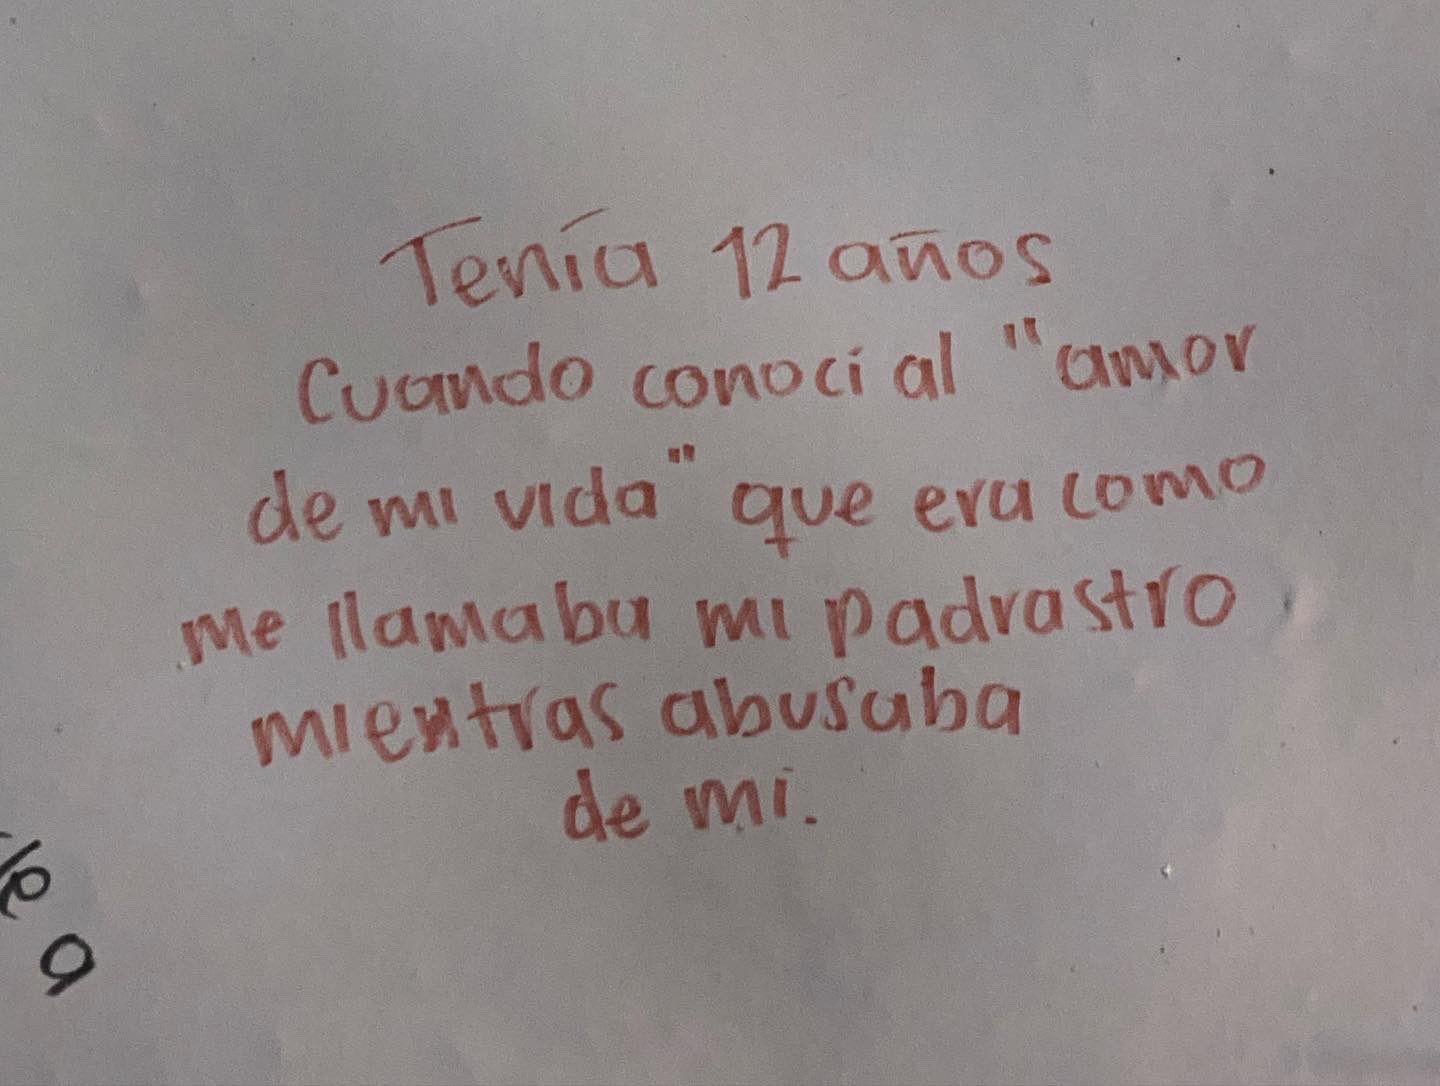 Tenía 12 años
Cuando conocí al "amor
de mi vida" que era como
me llamaba mi padrastro
mientras abusaba
de mi.